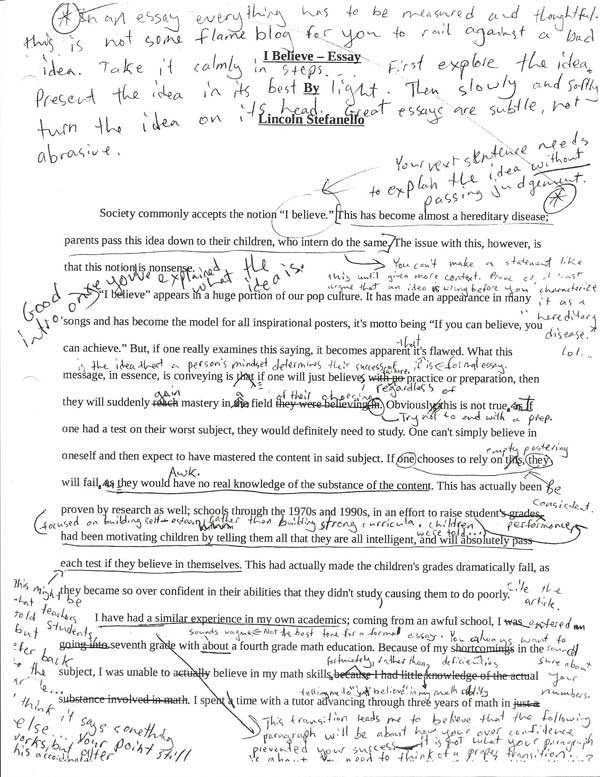 * In an essay everything has to be measured and thoughtful.
this is not some flame blog for you to rail against a bad
idea. Take it calmly in steps... First explore the idea.
I Believe – Essay
Present the idea in its best light. Then slowly and softly
By
turn the idea on its head. Great essays are subtle, not
Lincoln Stefanello
abrasive.
Your next sentence needs
to explain the idea without
passing judgement.
*
Society commonly accepts the notion “I believe.” This has become almost a hereditary disease;
parents pass this idea down to their children, who intern do the same. The issue with this, however, is
You can't make a statement like
that this notion is nonsense.
this until given more context. Prove or at least
argue that an idea is wrong before you characterize
it as a
"hereditary
disease."
lol...
Good
intro once you've explained
what the
idea is.
“I believe” appears in a huge portion of our pop culture. It has made an appearance in many
songs and has become the model for all inspirational posters, it's motto being “If you can believe, you
that
can achieve.” But, if one really examines this saying, it becomes apparent it's flawed. What this
is the idea that a person's mindset determines their success or failure.
it is formal essay.
message, in essence, is conveying is that if one will just believe, with no practice or preparation, then
regardless of
gain
of their choosing
they will suddenly reach mastery in the field they were believing in. Obviously this is not true, as if
Try not to end with a prep.
one had a test on their worst subject, they would definitely need to study. One can't simply believe in
oneself and then expect to have mastered the content in said subject. If one chooses to rely on this, they
empty posturing
Awk.
will fail, as they would have no real knowledge of the substance of the content. This has actually been
be
consistent.
proven by research as well; schools through the 1970s and 1990s, in an effort to raise student's grades
performance
focused on building self-esteem rather than building strong curricula. children
were told...
had been motivating children by telling them all that they are all intelligent, and will absolutely pass
each test if they believe in themselves. This had actually made the children's grades dramatically fall, as
they became so over confident in their abilities that they didn't study causing them to do poorly.
Cite the
article.
This might be
what teachers
told students
but
refer back
to the
article...
I think it says something
else... your point still
works, but
I have had a similar experience in my own academics; coming from an awful school, I was
entered
sounds vague Not the best tone for a formal essay. You always want to
sound
sure about
your
numbers.
going into seventh grade with about a fourth grade math education. Because of my shortcomings in the
fortunately, rather than deficiencies
subject, I was unable to actually believe in my math skills, because I had little knowledge of the actual
telling me to "just believe" in my math ability
substance involved in math. I spent a time with a tutor advancing through three years of math in just a
This transition leads me to believe that the following
paragraph will be about how your over confidence
prevented your success it is not what your paragraph
is about. You need to think of a proper transition...?